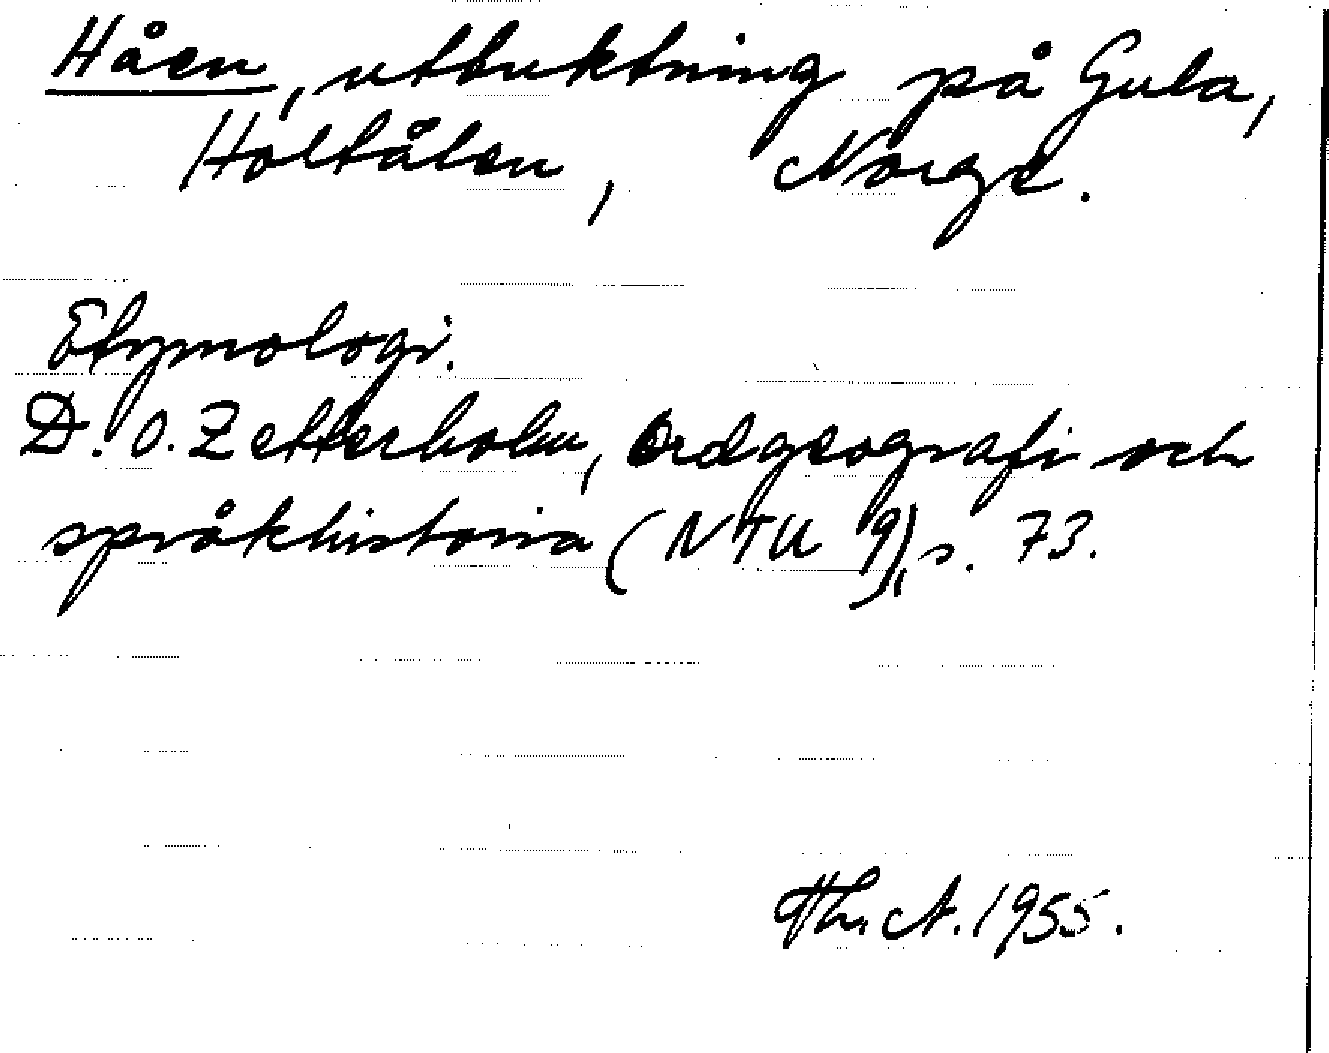 Håen, utbuktning på Gula,
Holtålen, Norge.
Etymologi.
D. O. Zetterholm, Ordgeografi och
språkhistoria (NTU 9), s. 73.
Th. A. 1955.